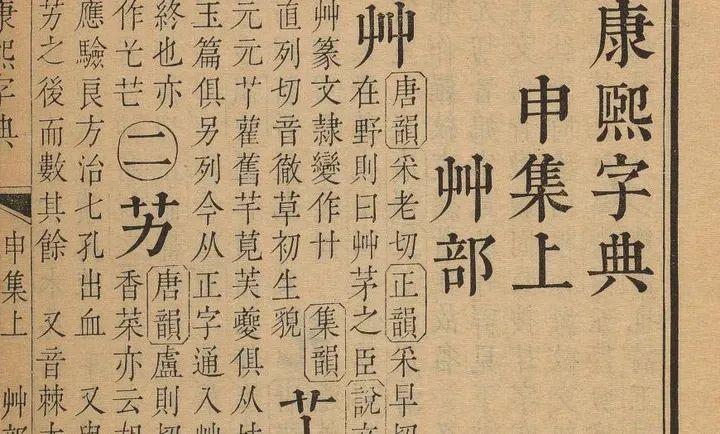 康熙字典
申集上
艸部
艸
唐韻采老切正韻采早切
在野則曰艸茅之臣說
艸篆文隸變作廾 集韻
直列切音徹草初生貌
元元艹藿舊芊莧芙夔俱从
玉篇俱另列今从正字通入艸
終也亦
作亡芒
二 艻
唐韻盧則切
香菜亦云胡
應驗良方治七孔出血 又
芳之後而數其餘 又音棘
康熙字典 申集上 艸部